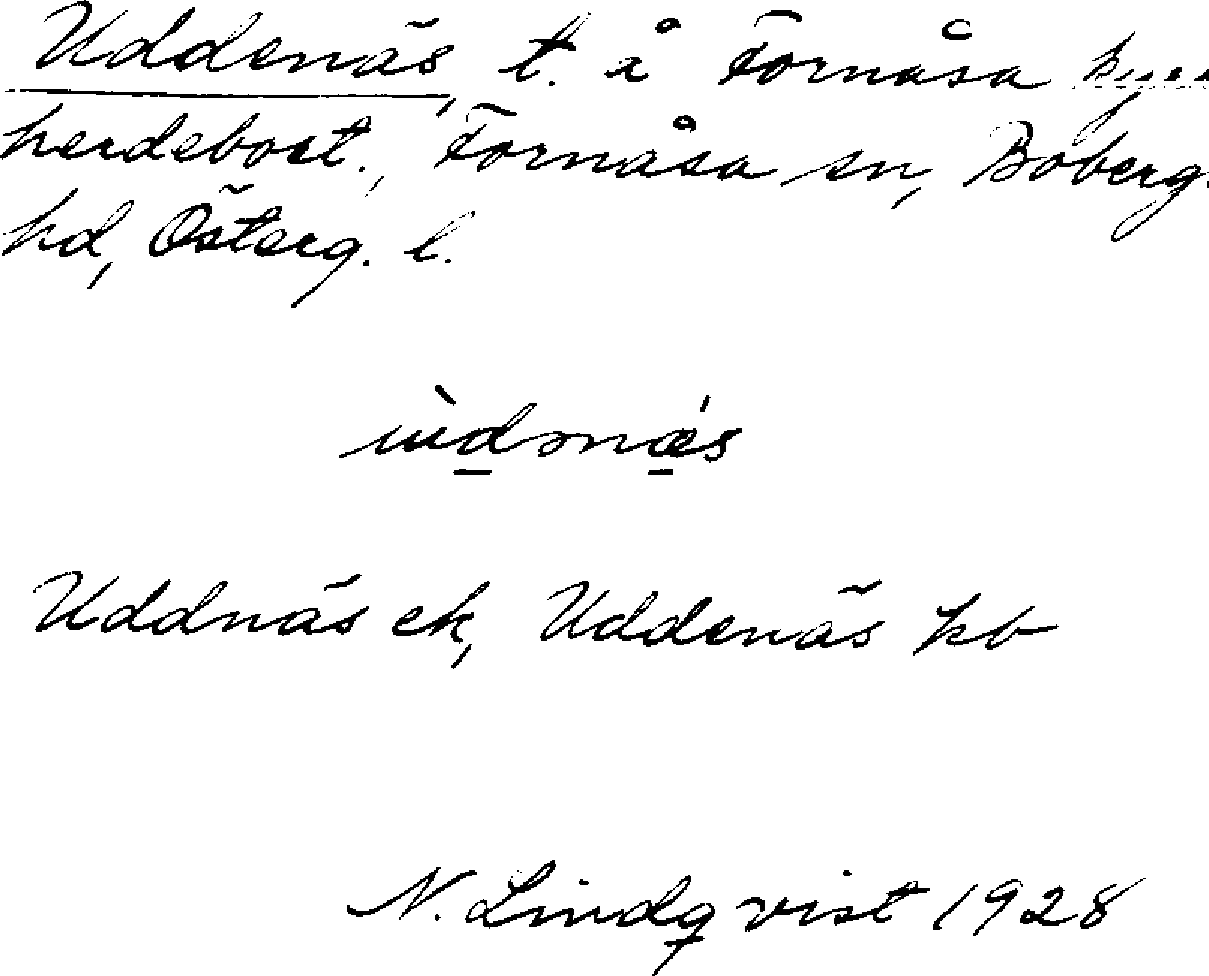 Uddenäs, t. å Fornåsa kyrk
herdebost., Fornåsa sn, Boberg.
hd, Österg. l.
ùdənä́s
Uddnäs ek, Uddenäs kb
N. Lindqvist 1928